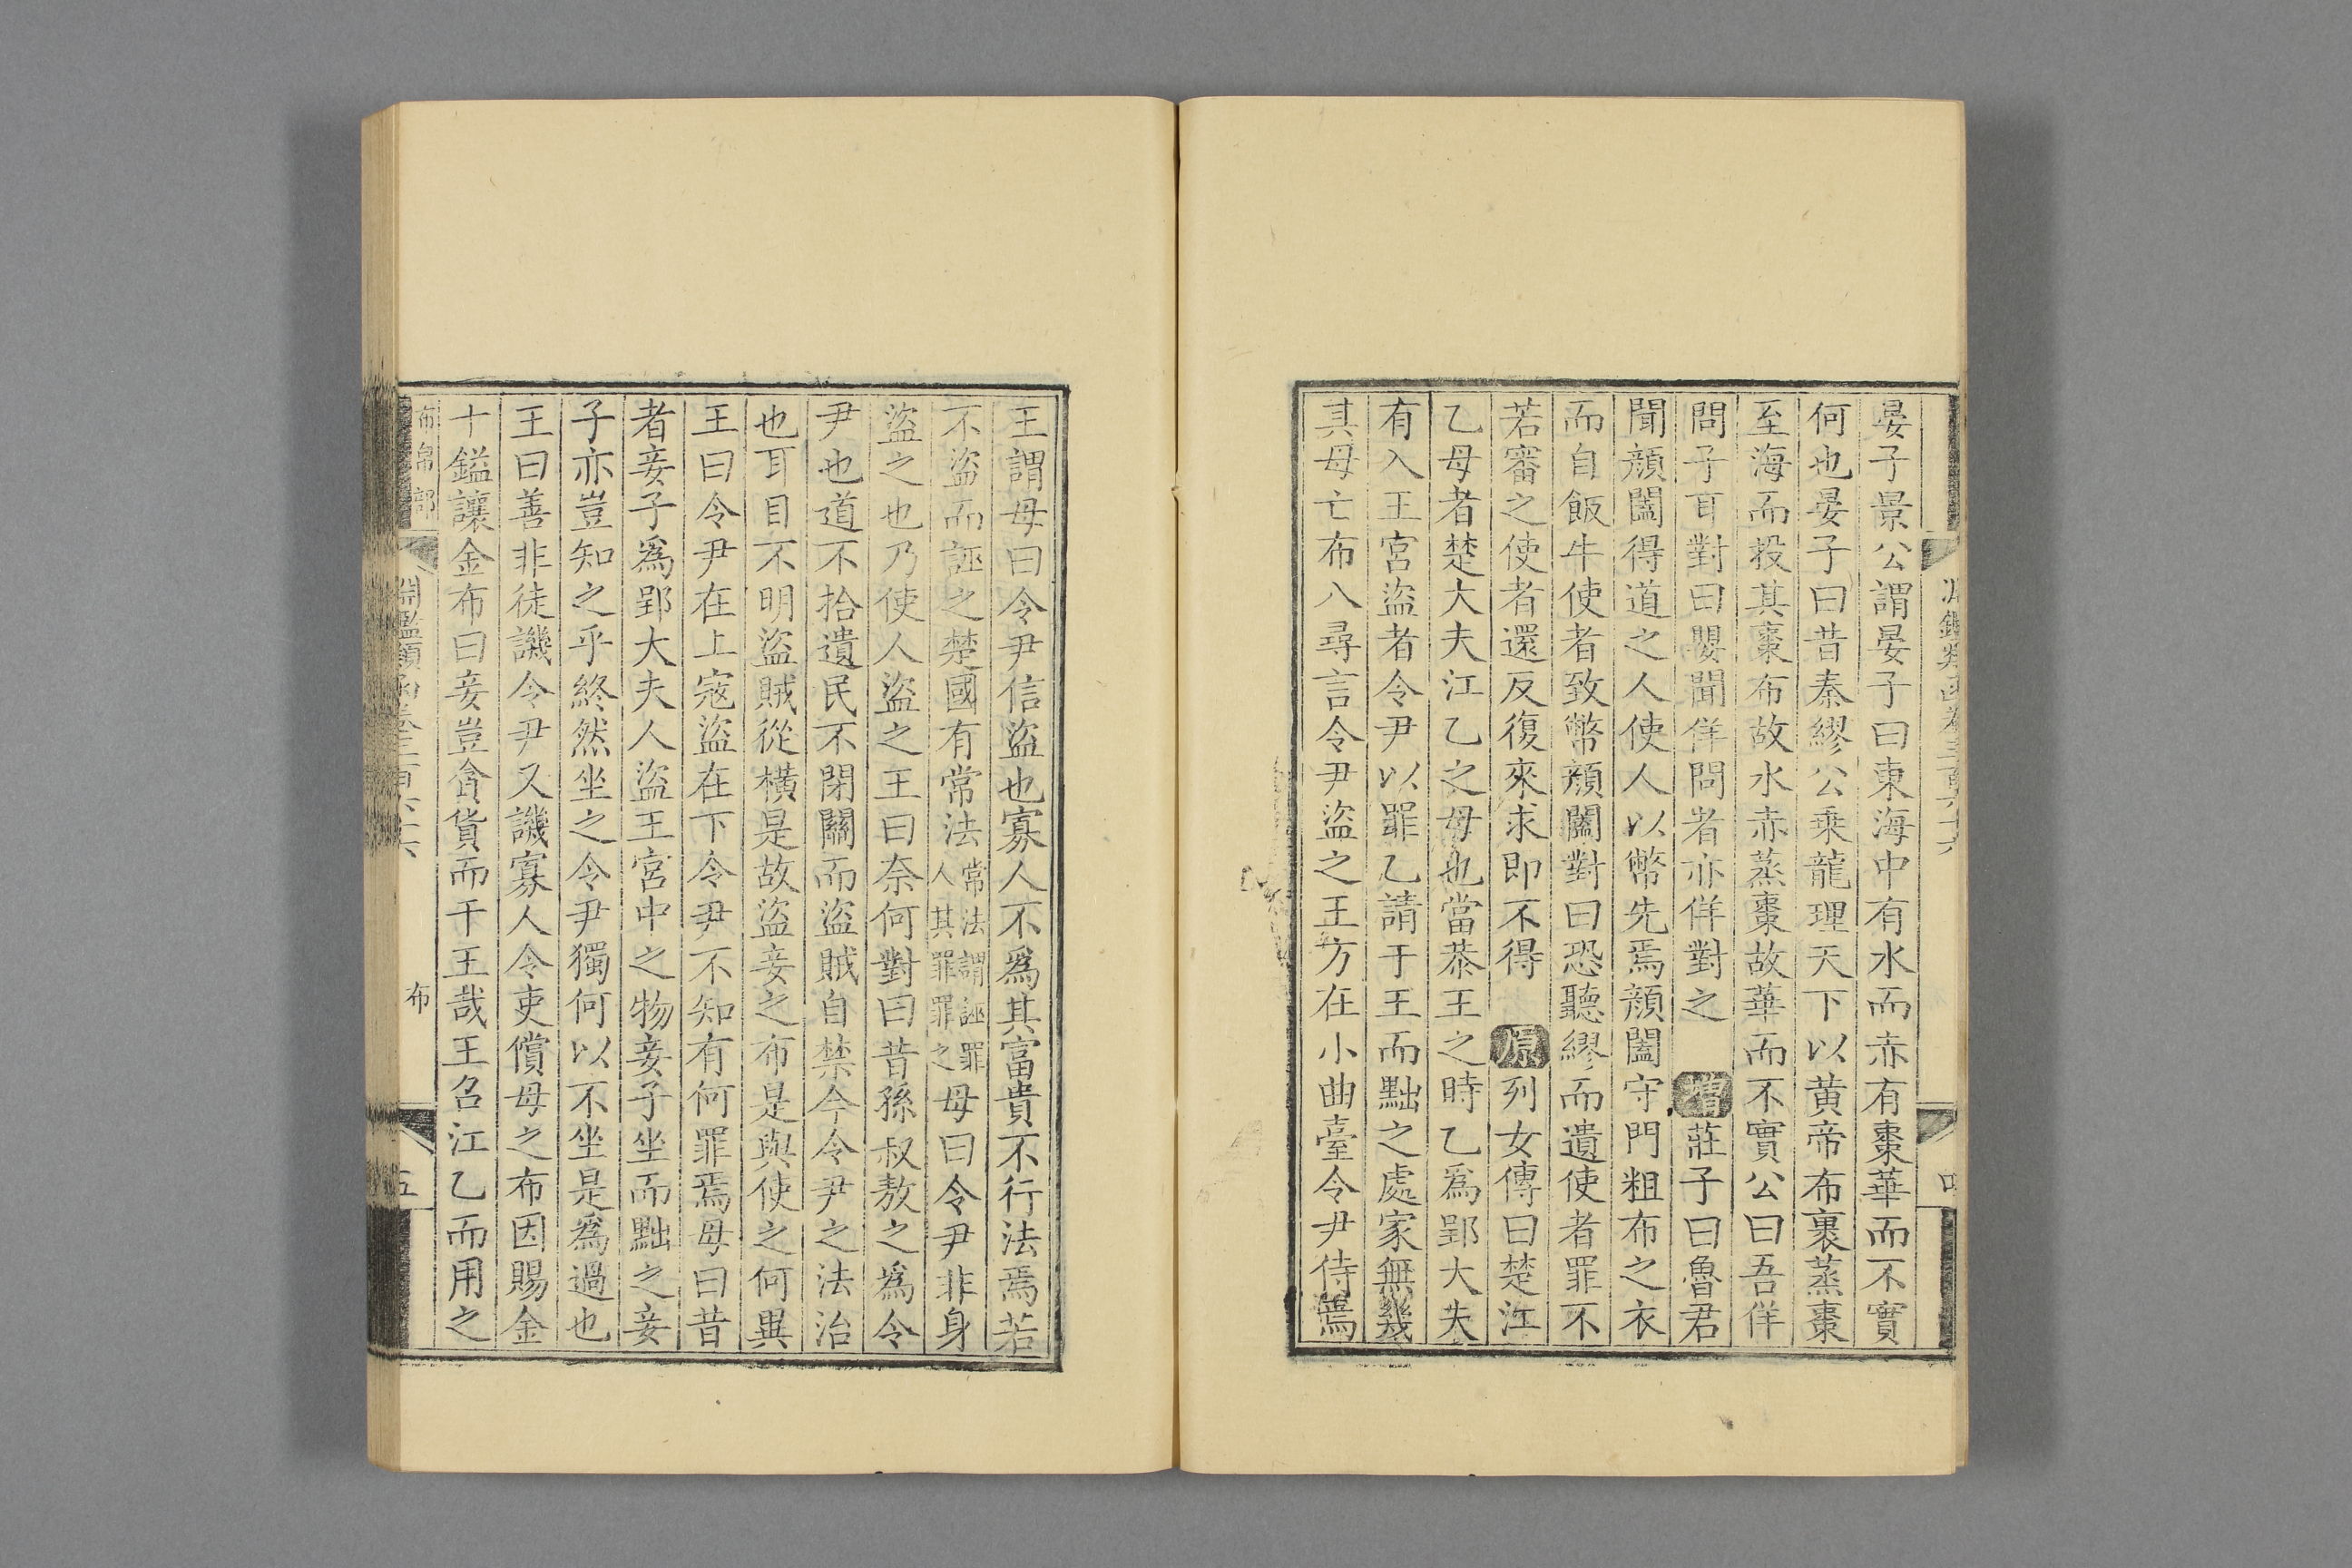 晏子景公謂晏子曰東海中有水而赤有棗華而不實
何也晏子曰昔秦繆公乗龍理天下以黄帝布裹蒸棗
至海而投其棗布故水赤蒸棗故華而不實公曰吾佯
問子耳對曰嬰聞佯問者亦佯對之 增莊子曰魯君
聞顔闔得道之人使人以幣先焉顔闔守門粗布之衣
而自飯牛使者致幣顔闔對曰恐聽繆而遺使者罪不
若審之使者還反復來求即不得 原列女傳曰楚江
乙母者楚大夫江乙之母也當恭王之時乙爲郢大夫
有入王宮盜者令尹以罪乙請于王而黜之處家無幾
其母亡布八尋言令尹盜之王方在小曲臺令尹侍焉
王謂母曰令尹信盜也寡人不爲其富貴不行法焉若
不盜而誣之楚國有常法常法謂誣罪人其罪罪之母曰令尹非身
盜之也乃使人盜之王曰奈何對曰昔孫叔敖之爲令
尹也道不拾遺民不閉關而盜賊自禁今令尹之法治
也耳目不明盜賊從橫是故盜妾之布是與使之何異
王曰令尹在上寇盜在下令尹不知有何罪焉母曰昔
者妾子爲郢大夫人盜王宮中之物妾子坐而黜之妾
子亦豈知之乎終然坐之令尹獨何以不坐是爲過也
王曰善非徒譏令尹又譏寡人令吏償母之布因賜金
十鎰讓金布曰妾豈貪貨而干王哉王召江乙而用之
布帛部 淵鑑類函卷三百六十六 布 五